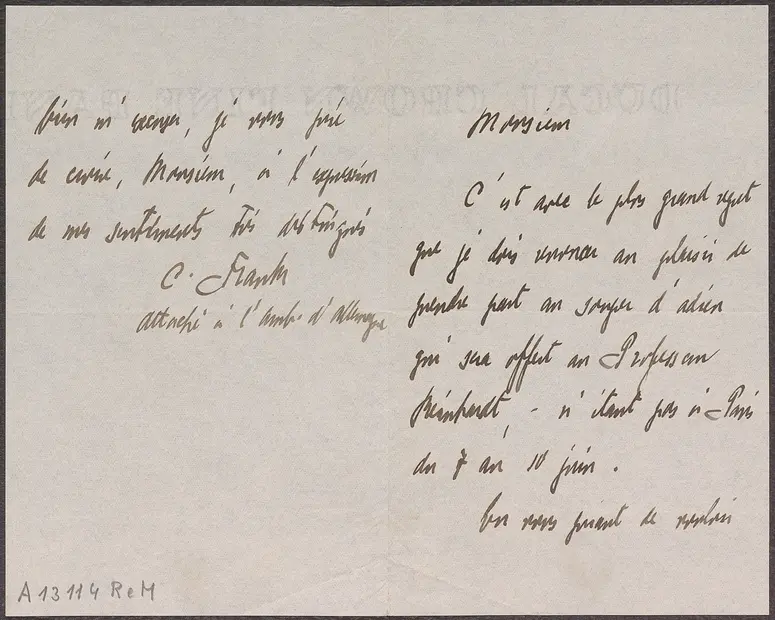 Monsieur
C'est avec le plus grand regret
que je dois renoncer au plaisir de
prendre part au souper d'adieu
qui sera offert au Professeur
Reinhardt, - n'étant pas à Paris
du 7 au 10 juin.
En vous priant de vouloir
bien m'excuser, je vous prie
de croire, Monsieur, à l'expression
de mes sentiments très distingués
C. Frank
attaché à l'amb. d'Allemagne
A 13114 ReM